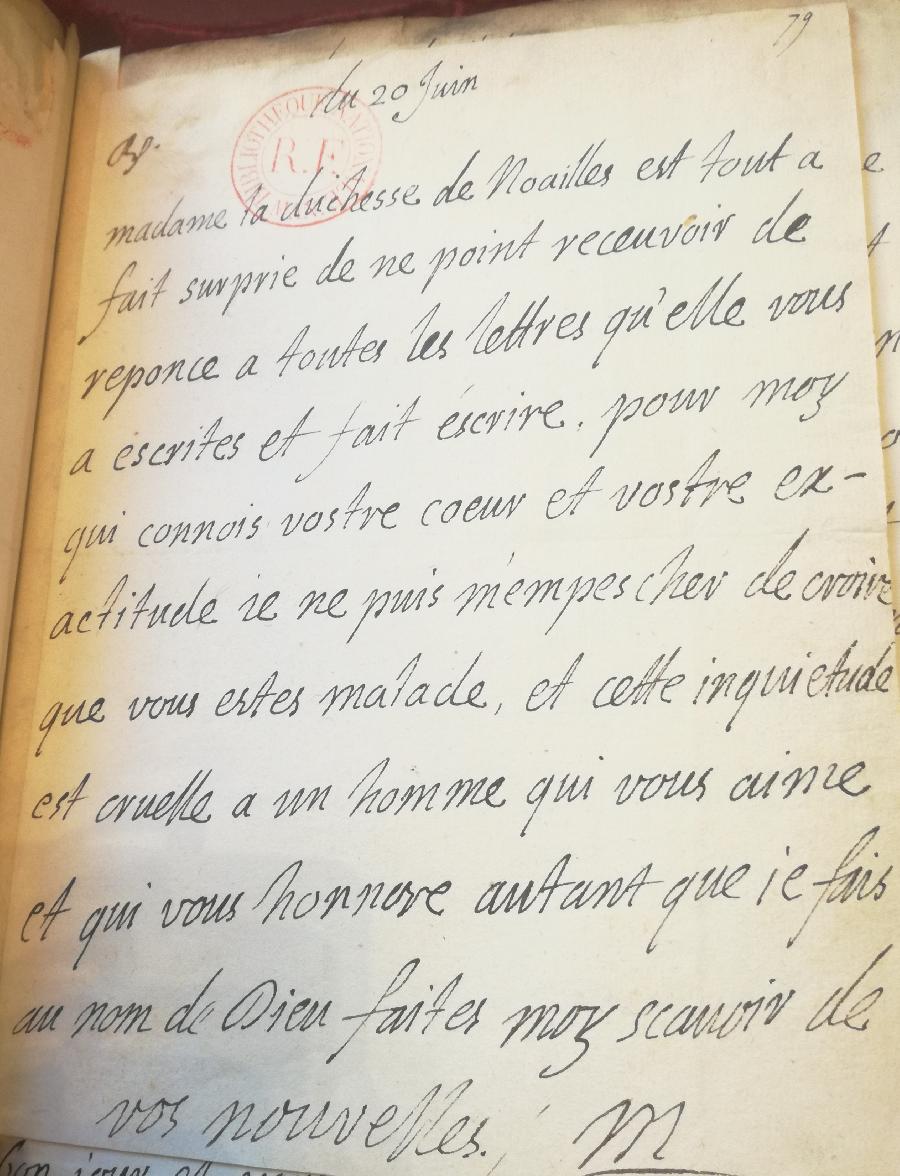 79
du 20 Juin
BIBLIOTHEQUE NATIONALE
R.F.
madame la duchesse de Noailles est tout a
fait surprie de ne point receuvoir de
reponce a toutes les lettres qu'elle vous
a escrites et fait éscrire. pour moy
qui connois vostre coeur et vostre ex-
actitude ie ne puis m'empescher de croire
que vous estes malade, et cette inquietude
est cruelle a un homme qui vous aime
et qui vous honnore autant que ie fais
au nom de Dieu faites moy scauoir de
vos nouvelles. M